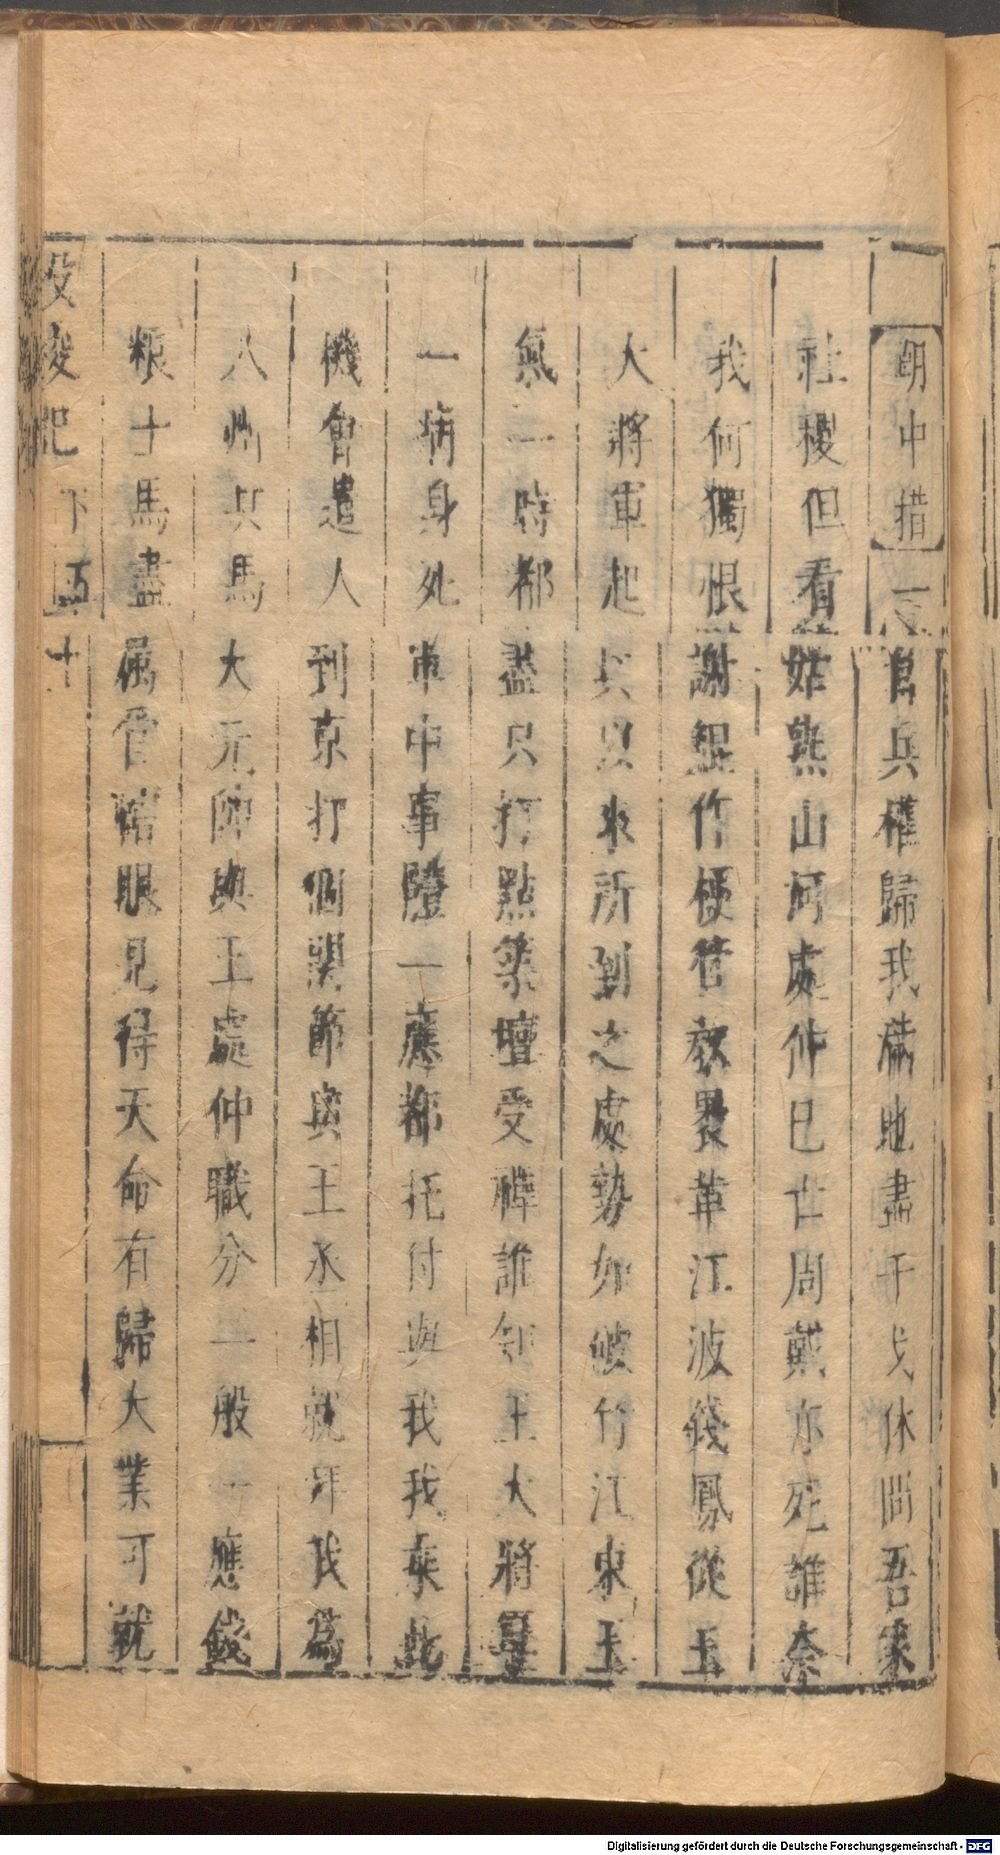 朝中措 官兵權歸我滿地肅干戈休問吾家
社稷但看姑熟山河處仲已亡周戴亦死誰奈
我何獨恨謝鯤作梗苦教畧革江波錢鳳從王
大將軍起兵以來所到之處勢如破竹江東王
氣一時都盡只打點築壇受禪誰知王大將軍
一病身死軍中事體一應都托付與我我乘此
機會遣人到京打個關節與王丞相就拜我爲
八州兵馬大元帥與王處仲職分一般一應錢
粮士馬盡屬管轄眼見得天命有歸大業可就
投梭記 下 十
Digitalisierung gefördert durch die Deutsche Forschungsgemeinschaft - DFG